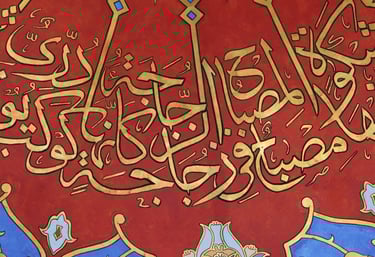 مصباح المصباح في زجاجة الزجاجة كأنها كوكب درّي